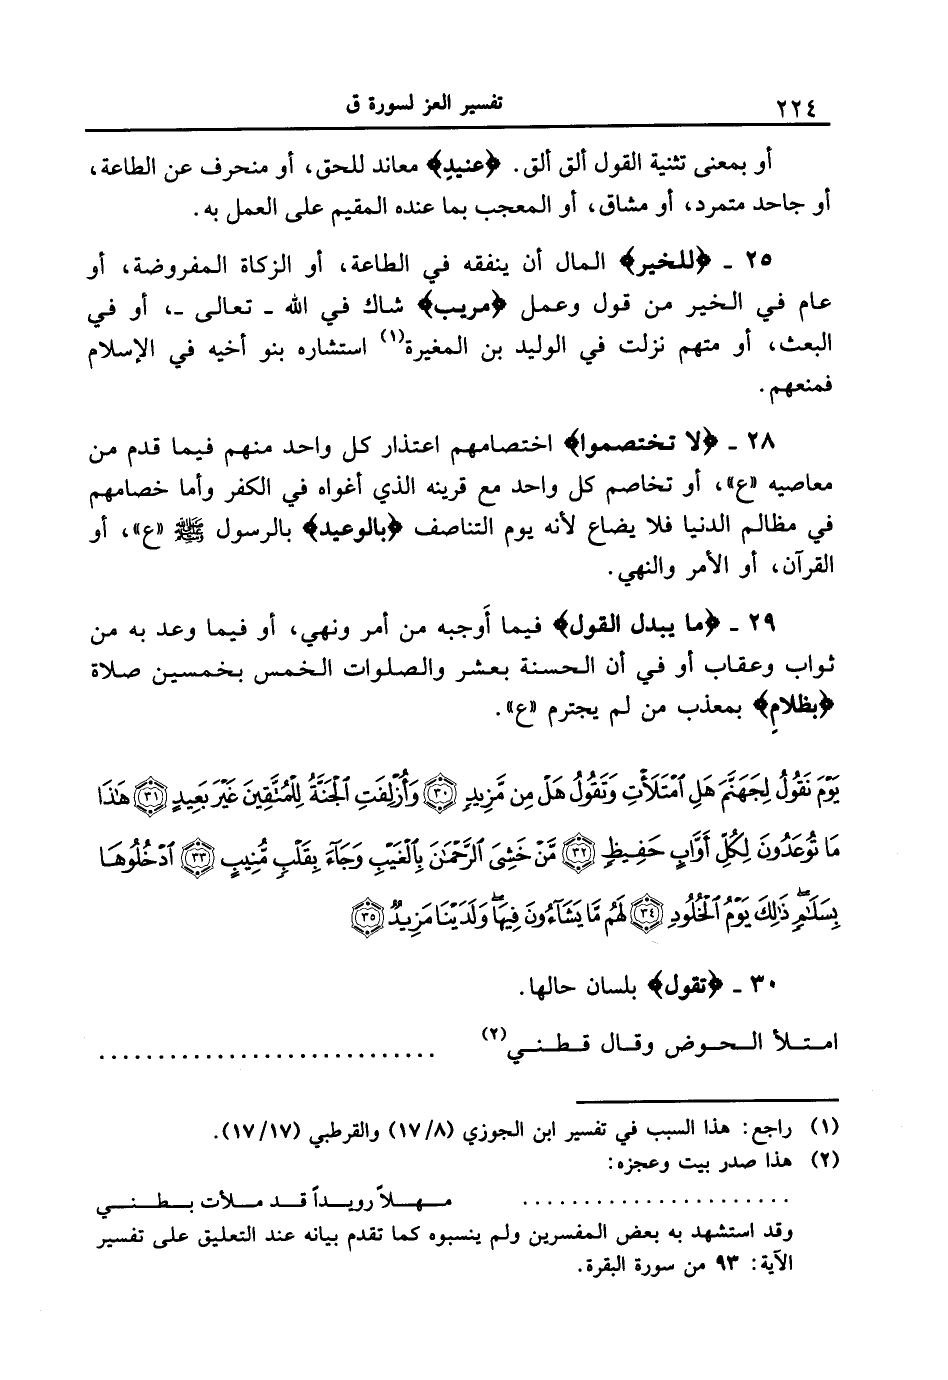 ٢٢٤ تفسير العز لسورة ق
أو بمعنى تثنية القول ألق ألق. ﴿عنيدٍ﴾ معاند للحق، أو منحرف عن الطاعة،
أو جاحد متمرد، أو مشاق، أو المعجب بما عنده المقيم على العمل به.
٢٥ ـ ﴿للخير﴾ المال أن ينفقه في الطاعة، أو الزكاة المفروضة، أو
عام في الخير من قول وعمل ﴿مريب﴾ شاك في الله ـ تعالى ـ، أو في
البعث، أو متهم نزلت في الوليد بن المغيرة(١) استشاره بنو أخيه في الإسلام
فمنعهم.
٢٨ ـ ﴿لا تختصموا﴾ اختصامهم اعتذار كل واحد منهم فيما قدم من
معاصيه «ع»، أو تخاصم كل واحد مع قرينه الذي أغواه في الكفر وأما خصامهم
في مظالم الدنيا فلا يضاع لأنه يوم التناصف ﴿بالوعيد﴾ بالرسول ﷺ «ع»، أو
القرآن، أو الأمر والنهي.
٢٩ ـ ﴿ما يبدل القول﴾ فيما أَوجبه من أمر ونهي، أو فيما وعد به من
ثواب وعقاب أو في أن الحسنة بعشر والصلوات الخمس بخمسين صلاة
﴿بظلامٍ﴾ بمعذب من لم يجترم «ع».
يَوْمَ نَقُولُ لِجَهَنَّمَ هَلِ ٱمْتَلَأْتِ وَتَقُولُ هَلْ مِن مَّزِيدٍ ٣٠ وَأُزْلِفَتِ ٱلْجَنَّةُ لِلْمُتَّقِينَ غَيْرَ بَعِيدٍ ٣١ هَٰذَا
مَا تُوعَدُونَ لِكُلِّ أَوَّابٍ حَفِيظٍ ٣٢ مَّنْ خَشِىَ ٱلرَّحْمَٰنَ بِٱلْغَيْبِ وَجَآءَ بِقَلْبٍ مُّنِيبٍ ٣٣ ٱدْخُلُوهَا
بِسَلَٰمٍ ۖ ذَٰلِكَ يَوْمُ ٱلْخُلُودِ ٣٤ لَهُم مَّا يَشَآءُونَ فِيهَا ۖ وَلَدَيْنَا مَزِيدٌ ٣٥
٣٠ ـ ﴿تقول﴾ بلسان حالها.
امتلأ الحوض وقال قطني(٢) .............................
(١) راجع: هذا السبب في تفسير ابن الجوزي (١٧/٨) والقرطبي (١٧/١٧).
(٢) هذا صدر بيت وعجزه:
....................... مهلاً رويداً قد ملأت بطني
وقد استشهد به بعض المفسرين ولم ينسبوه كما تقدم بيانه عند التعليق على تفسير
الآية: ٩٣ من سورة البقرة.